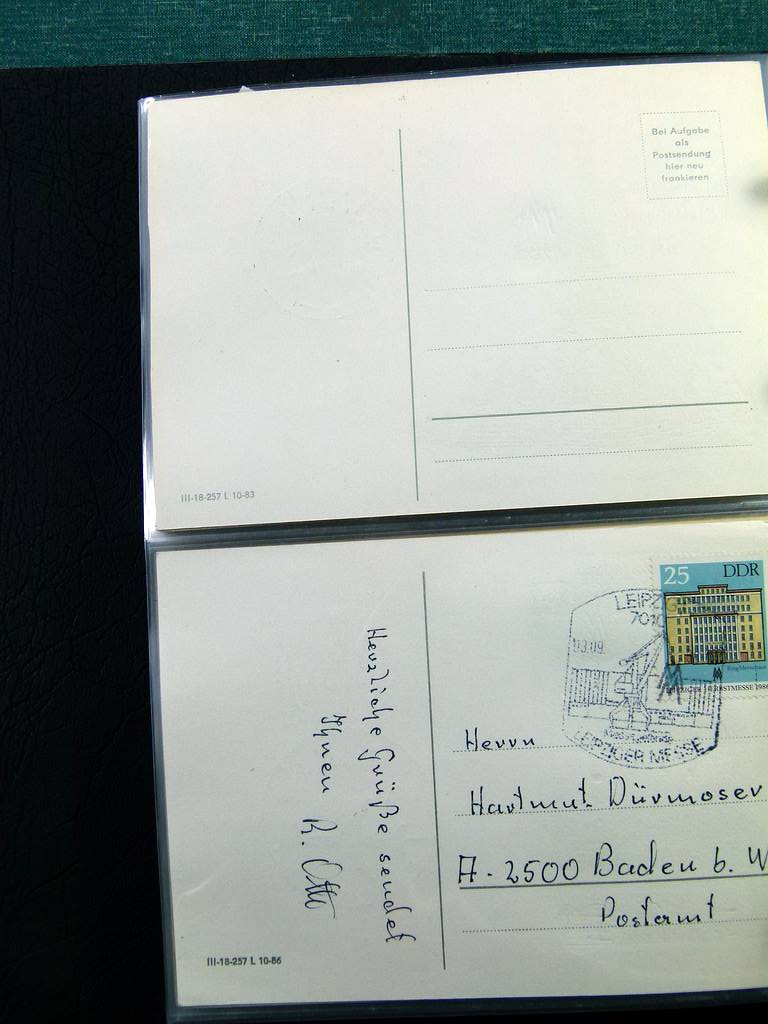 Bei Aufgabe
als
Postsendung
hier neu
frankieren
III-18-257 L 10-83
25 DDR
LEIPZIG
7010
LEIPZIGER HERBSTMESSE 1986
LEIPZIGER MESSE
Herrn
Hartmut Dürmoser
A-2500 Baden b. W
Postamt
Herzliche Grüße sendet
Ihnen R. Otto
III-18-257 L 10-86